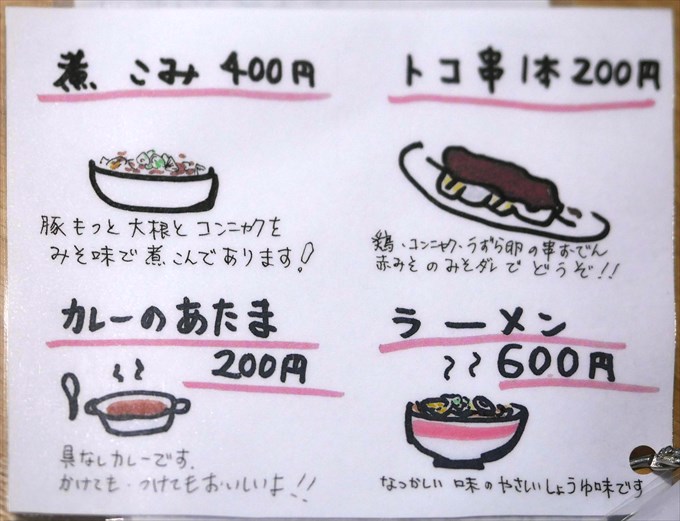 煮こみ 400円
豚もつと大根とコンニャクを
みそ味で煮こんであります!
トコ串1本200円
鶏、コンニャク、うずら卵の串おでん
赤みそのみそダレでどうぞ!!
カレーのあたま
200円
具なしカレーです。
かけても・つけてもおいしいよ!!
ラーメン
600円
なつかしい味のやさいしょうゆ味です